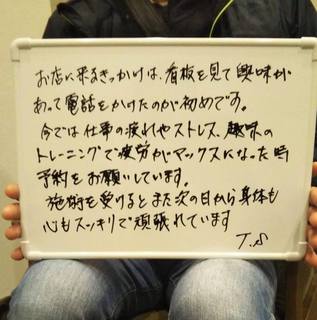 お店に来るきっかけは、看板を見て興味が
あって電話をかけたのが初めです。
今では仕事の疲れやストレス、趣味の
トレーニングで疲労がマックスになった時
予約をお願いしています。
施術を受けるとまた次の日から身体も
心もスッキリで頑張れています
T.S